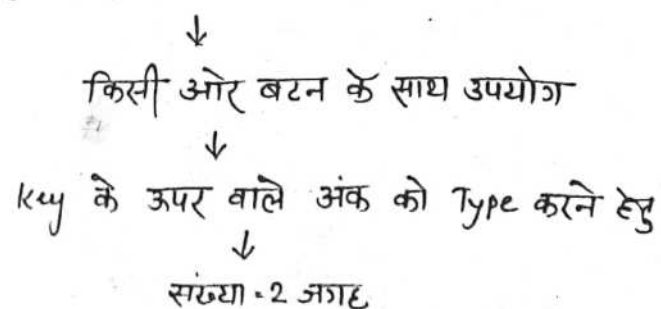 ↓
किसी ओर बटन के साथ उपयोग
↓
key के ऊपर वाले अंक को Type करने हेतु
↓
संख्या - 2 जगह